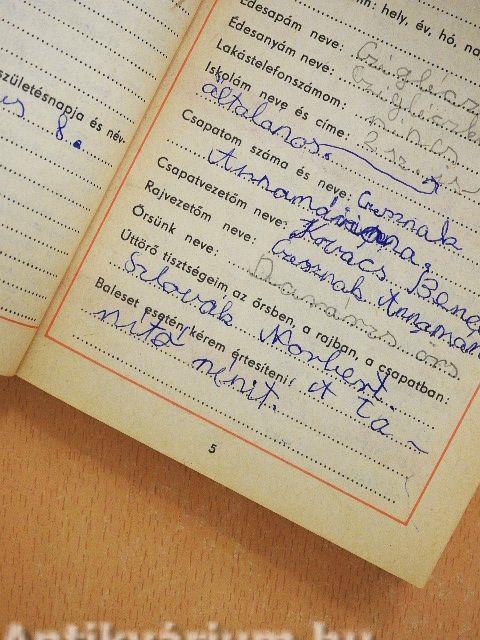 születésnapja és név-
us 8.
Édesapám neve:
Édesanyám neve:
Lakástelefonszámom: nincs
Iskolám neve és címe: 2 sz.
általános.
Csapatom száma és neve: Csesznak
Annamária.
Csapatvezetőm neve: Kovács
Rajvezetőm neve: Csesznak Annamá
Őrsünk neve: Narancs örs
Úttörő tisztségeim az őrsben, a rajban, a csapatban:
Szlovák Norbert.
Baleset esetén kérem értesíteni: A Ta-
nitó nénit.
5
Antikvárium.hu